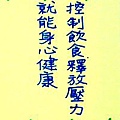 控制飲食釋放壓力
就能身心健康